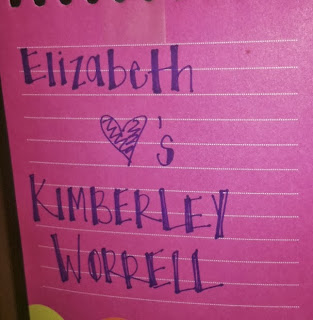 Elizabeth
♥'s
KIMBERLEY
WORRELL